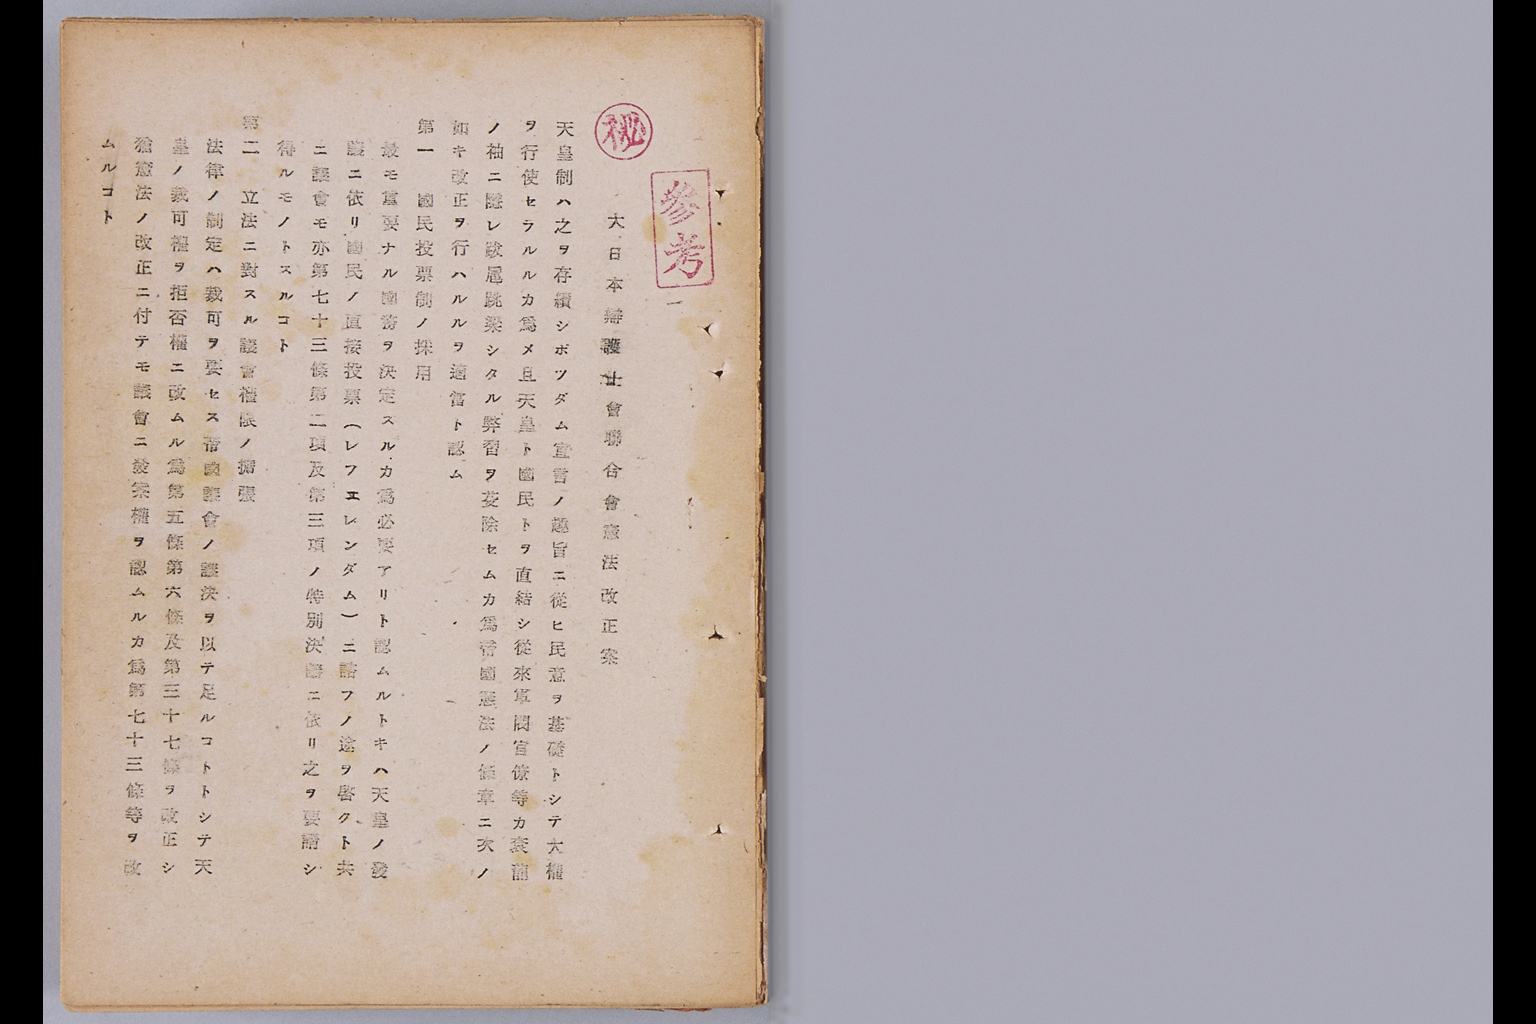 秘
參考
一
大日本辯護士會聯合會憲法改正案
天皇制ハ之ヲ存續シポツダム宣言ノ趣旨ニ從ヒ民意ヲ基礎トシテ大權
ヲ行使セラルルカ爲メ且天皇ト國民トヲ直結シ從來軍閥官僚等カ袞龍
ノ袖ニ隱レ跋扈跳梁シタル弊習ヲ芟除セムカ爲帝國憲法ノ條章ニ次ノ
如キ改正ヲ行ハルルヲ適當ト認ム
第一　國民投票制ノ採用
最モ重要ナル國務ヲ決定スルカ爲必要アリト認ムルトキハ天皇ノ發
議ニ依リ國民ノ直接投票（レフエレンダム）ニ諮フノ途ヲ啓クト共
ニ議會モ亦第七十三條第二項及第三項ノ特別決議ニ依リ之ヲ要請シ
得ルモノトスルコト
第二　立法ニ對スル議會權限ノ擴張
法律ノ制定ハ裁可ヲ要セス帝國議會ノ議決ヲ以テ足ルコトトシテ天
皇ノ裁可權ヲ拒否權ニ改ムル爲第五條第六條及第三十七條ヲ改正シ
猶憲法ノ改正ニ付テモ議會ニ發案權ヲ認ムルカ爲第七十三條等ヲ改
ムルコト